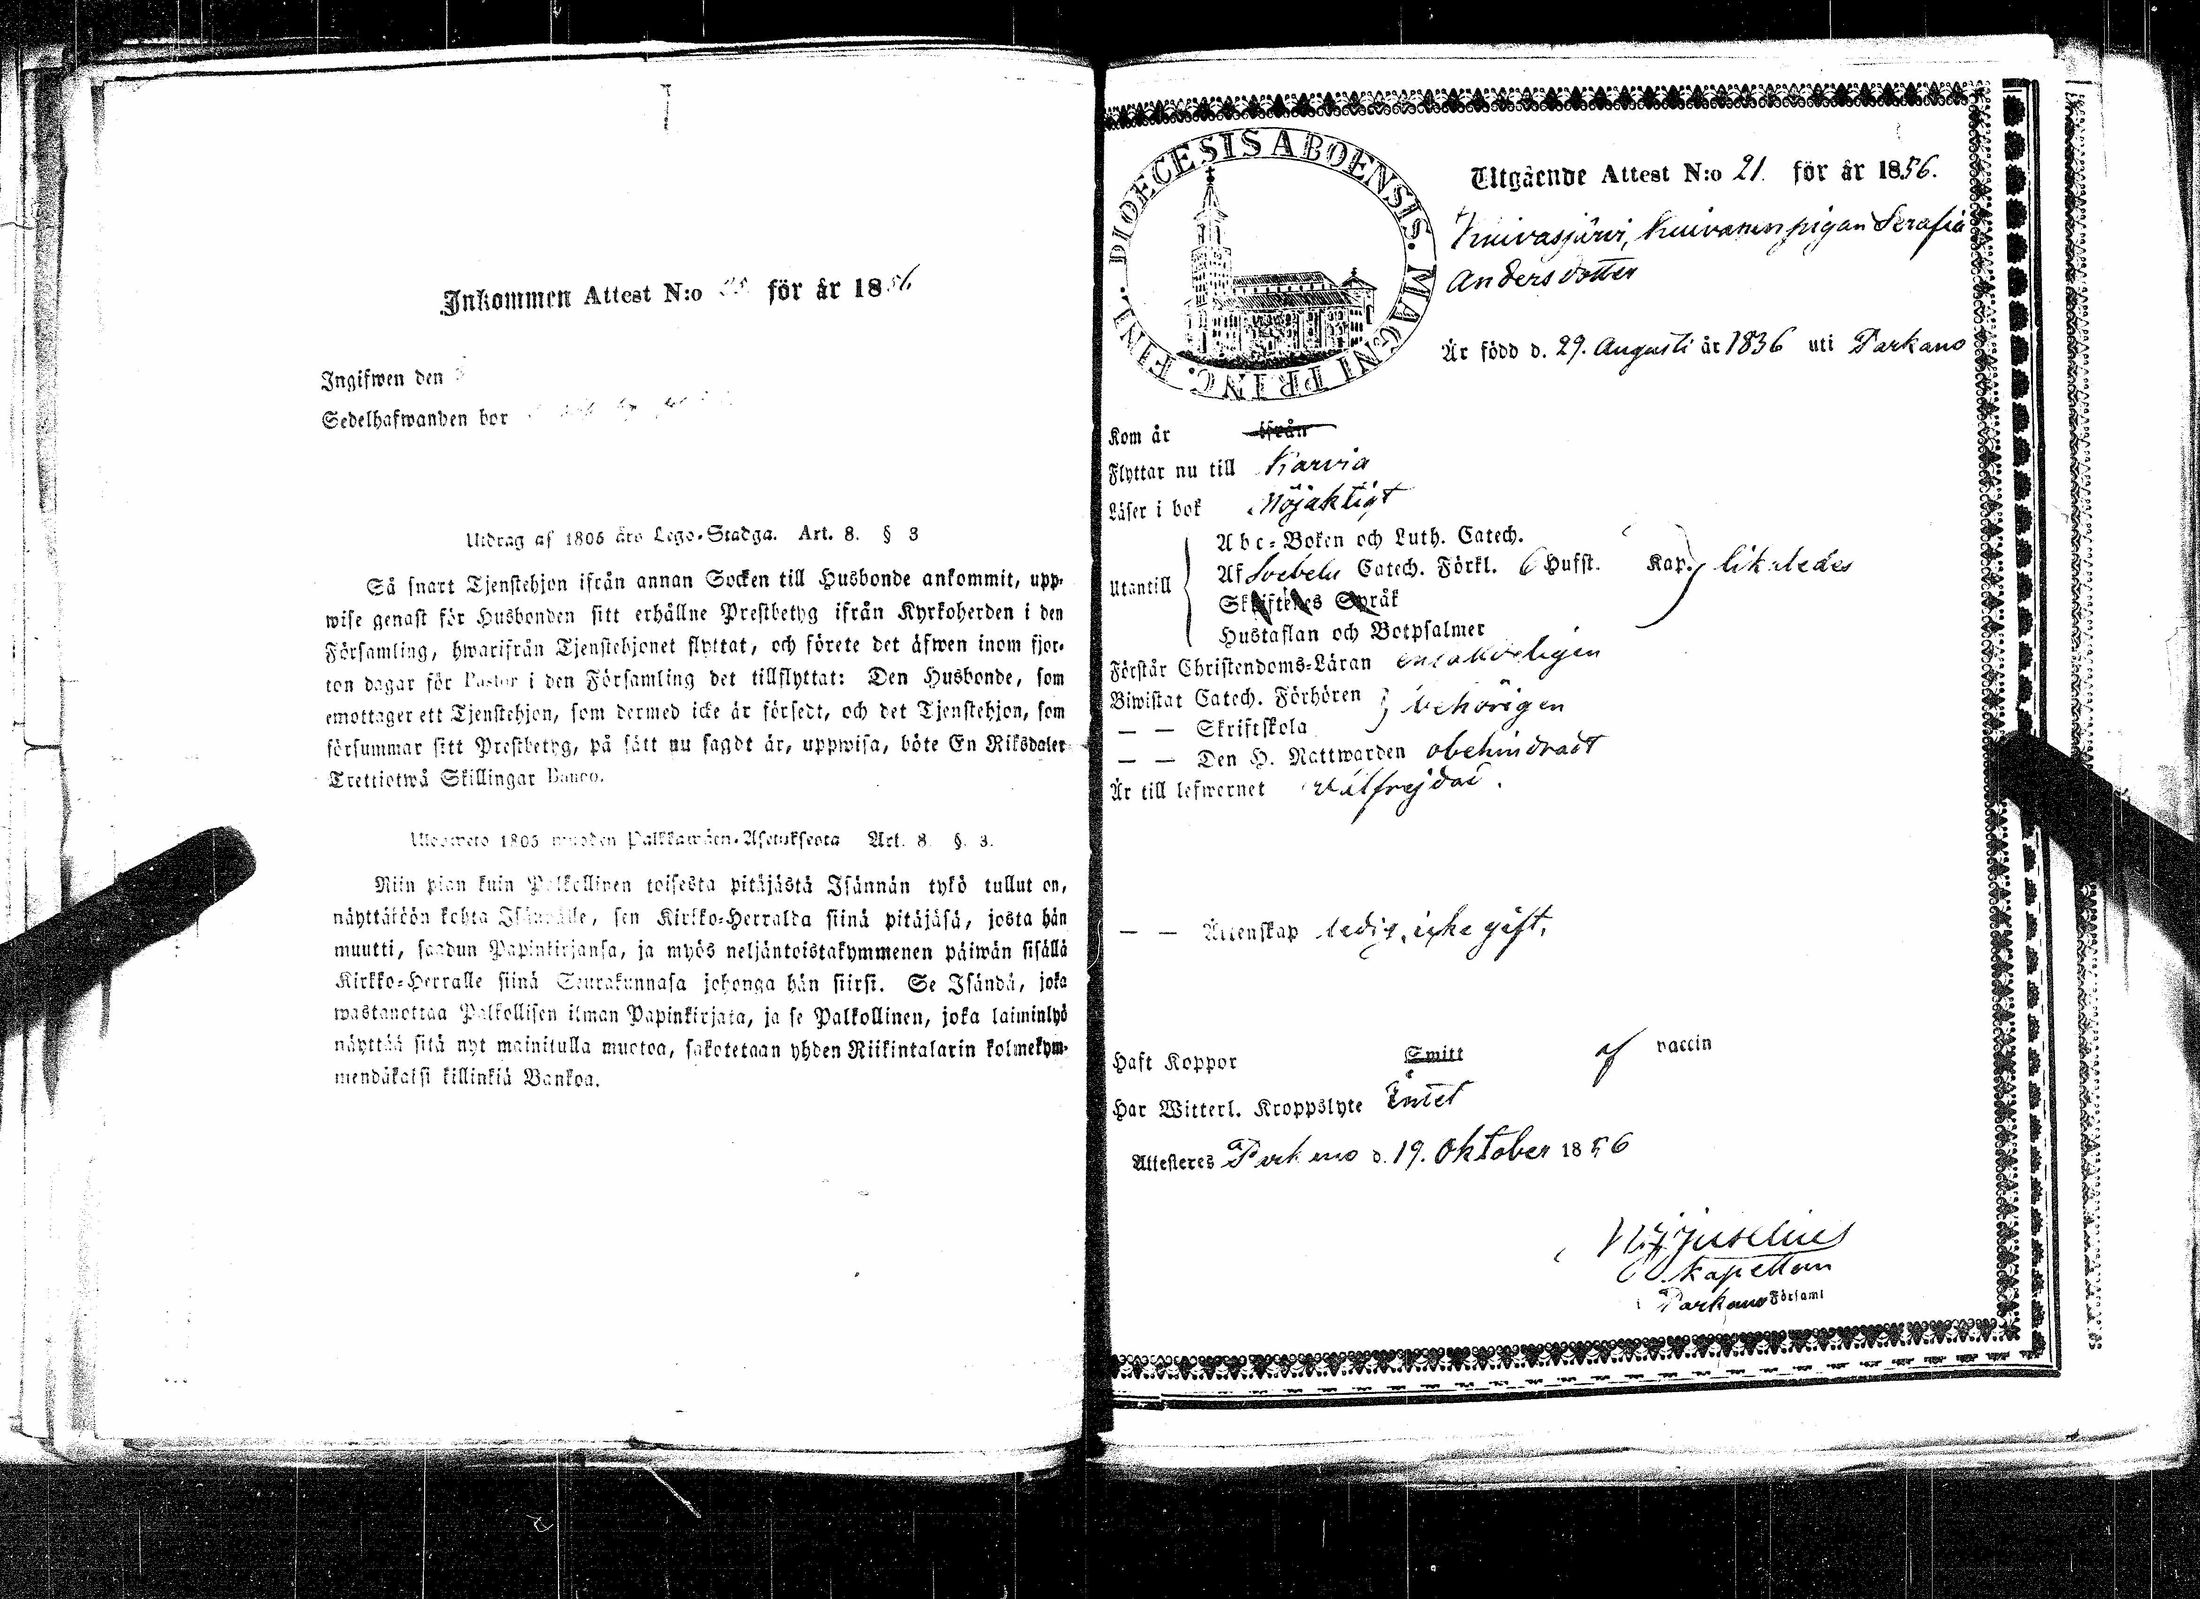 Inkommen Attest N:o för år 1856
Ingifwen den
Sedelhafwanden bor
Utdrag af 1805 års Lego-Stadga. Art. 8. § 3
Så snart Tjenstehjon ifrån annan Socken till Husbonde ankommit, upp-
wise genast för Husbonden sitt erhållne Prestbetyg ifrån Kyrkoherden i den
Församling, hwarifrån Tjenstehjonet flyttat, och förete det äfwen inom fjor-
ton dagar för Pastor i den Församling det tillflyttat: Den Husbonde, som
emottager ett Tjenstehjon, som dermed icke är försedt, och det Tjenstehjon, som
försummar sitt Prestbetyg, på sätt nu sagdt är, uppwisa, böte En Riksdaler
Trettiotwå Skillingar Banco.
Ulosweto 1805 wuoden Palkkawäen-Asetuksesta Art. 8. §. 3.
Niin pian kuin Palkollinen toisesta pitäjästä Isännän tykö tullut on,
näyttäköön kohta Isännälle, sen Kirkko-Herralda siinä pitäjäsä, josta hän
muutti, saadun Papinkirjansa, ja myös neljäntoistakymmenen päiwän sisällä
Kirkko-Herralle siinä Seurakunnasa johonga hän siirsi. Se Isändä, joka
wastanottaa Palkollisen ilman Papinkirjata, ja se Palkollinen, joka laiminlyö
näyttää sitä nyt mainitulla muotoa, sakotetaan yhden Riikintalarin kolmekym-
mendäkaksi killinkiä Bankoa.
DIOECESIS ABOENSIS. MAGNI PRINC. FINL.
Utgående Attest N:o 21. för år 1856.
Kuivasjärvi, Kuivanen pigan Serafia
Andersdotter
Är född d. 29. Augusti år 1836 uti Parkano
Kom år ifrån
Flyttar nu till Karvia
Läser i bok Nöjaktigt
Utantill
Abc-Boken och Luth. Catech.
Af Svebelii Catech. Förkl. 6 Hufst. Kap. likaledes
Skriftenes Språk
Hustaflan och Botpsalmer
Förstår Christendoms-Läran enfaldeligen
Biwistat Catech. Förhören behörigen
— — Skriftskola
— — Den H. Nattwarden obehindradt
Är till lefwernet välfrejdad.
— — Äktenskap ledig, icke gift.
Haft Koppor Smitt af vaccin
Har Witterl. Kroppslyte Intet
Attesteres Parkano d. 19. Oktober 1856
Juselius
Kapellan
Parkano Församl